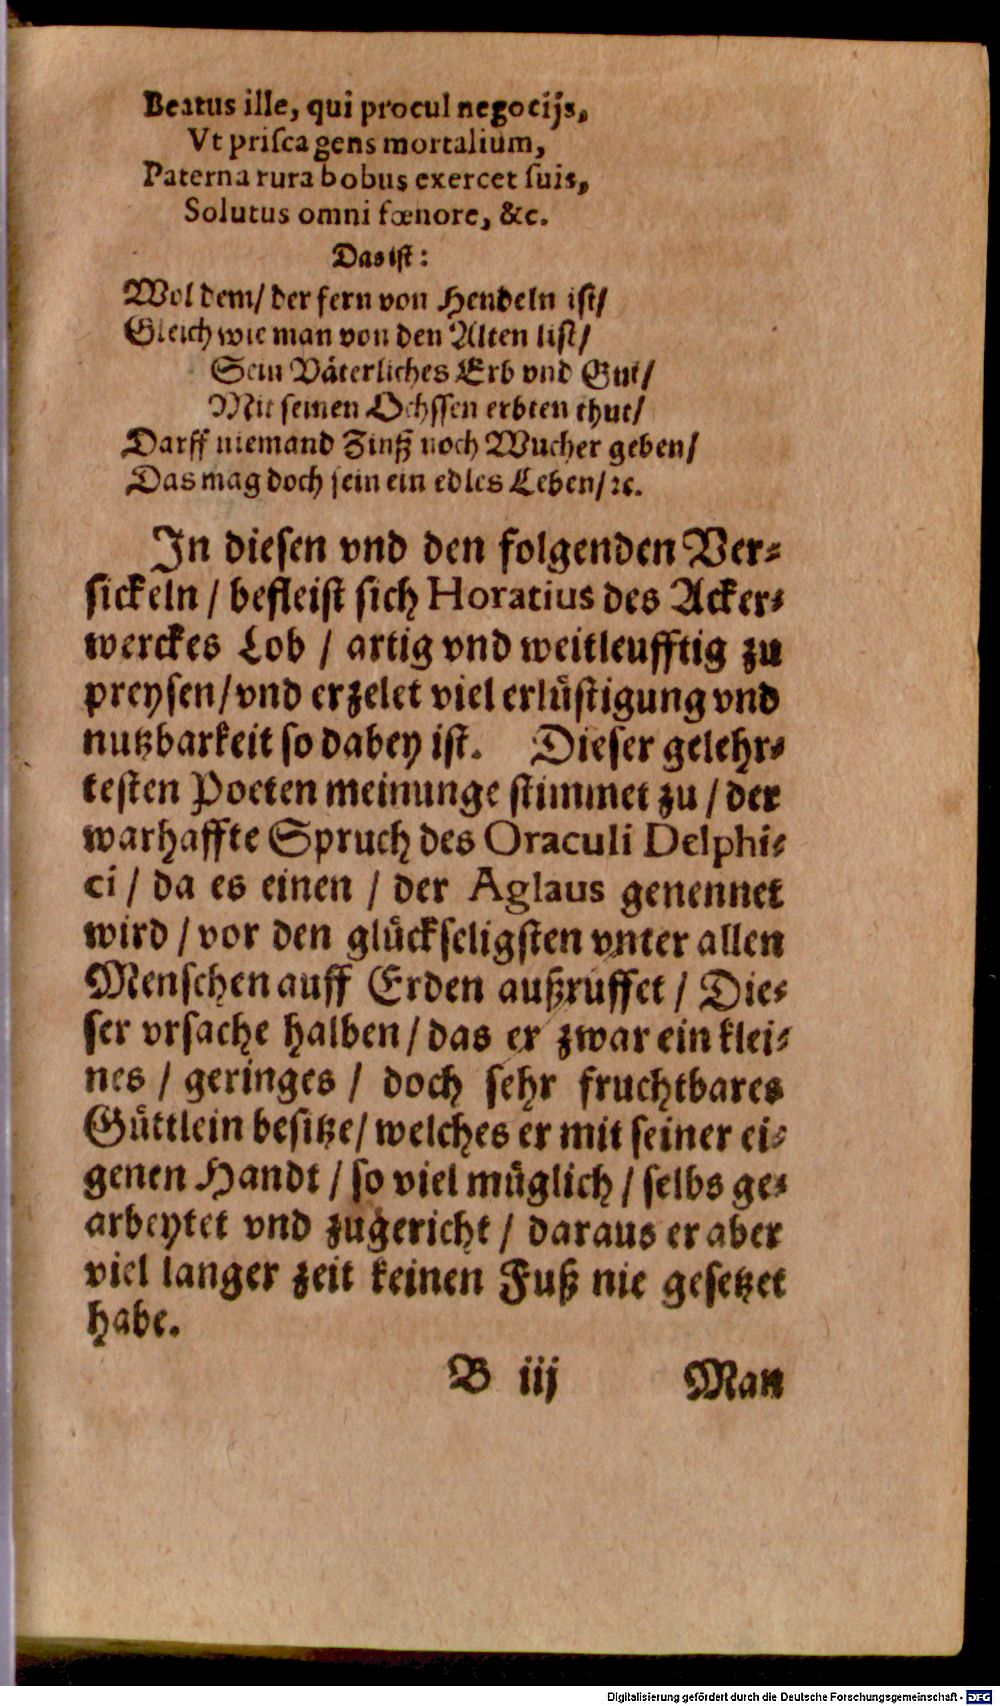 Beatus ille, qui procul negocijs,
Vt priſca gens mortalium,
Paterna rura bobus exercet ſuis,
Solutus omni fœnore, &c.
Das iſt:
Wol dem/ der fern von Hendeln iſt/
Gleich wie man von den Alten liſt/
Sein Väterliches Erb vnd Gut/
Mit ſeinen Ochſſen erbten thut/
Darff niemand Zinß noch Wucher geben/
Das mag doch ſein ein edles Leben/ ꝛc.
In dieſen vnd den folgenden Ver⸗
ſickeln / befleiſt ſich Horatius des Acker⸗
werckes Lob / artig vnd weitleufftig zu
preyſen/ vnd erzelet viel erlůſtigung vnd
nutzbarkeit ſo dabey iſt. Dieſer gelehr⸗
teſten Poeten meinunge ſtimmet zu / der
warhaffte Spruch des Oraculi Delphi⸗
ci / da es einen / der Aglaus genennet
wird / vor den glůckſeligſten vnter allen
Menſchen auff Erden außruffet / Die⸗
ſer vrſache halben / das er zwar ein klei⸗
nes / geringes / doch ſehr fruchtbares
Gůttlein beſitze/ welches er mit ſeiner ei⸗
genen Handt / ſo viel můglich / ſelbs ge⸗
arbeytet vnd zugericht / daraus er aber
viel langer zeit keinen Fuß nie geſetzet
habe.
B iij Man
Digitalisierung gefördert durch die Deutsche Forschungsgemeinschaft - DFG